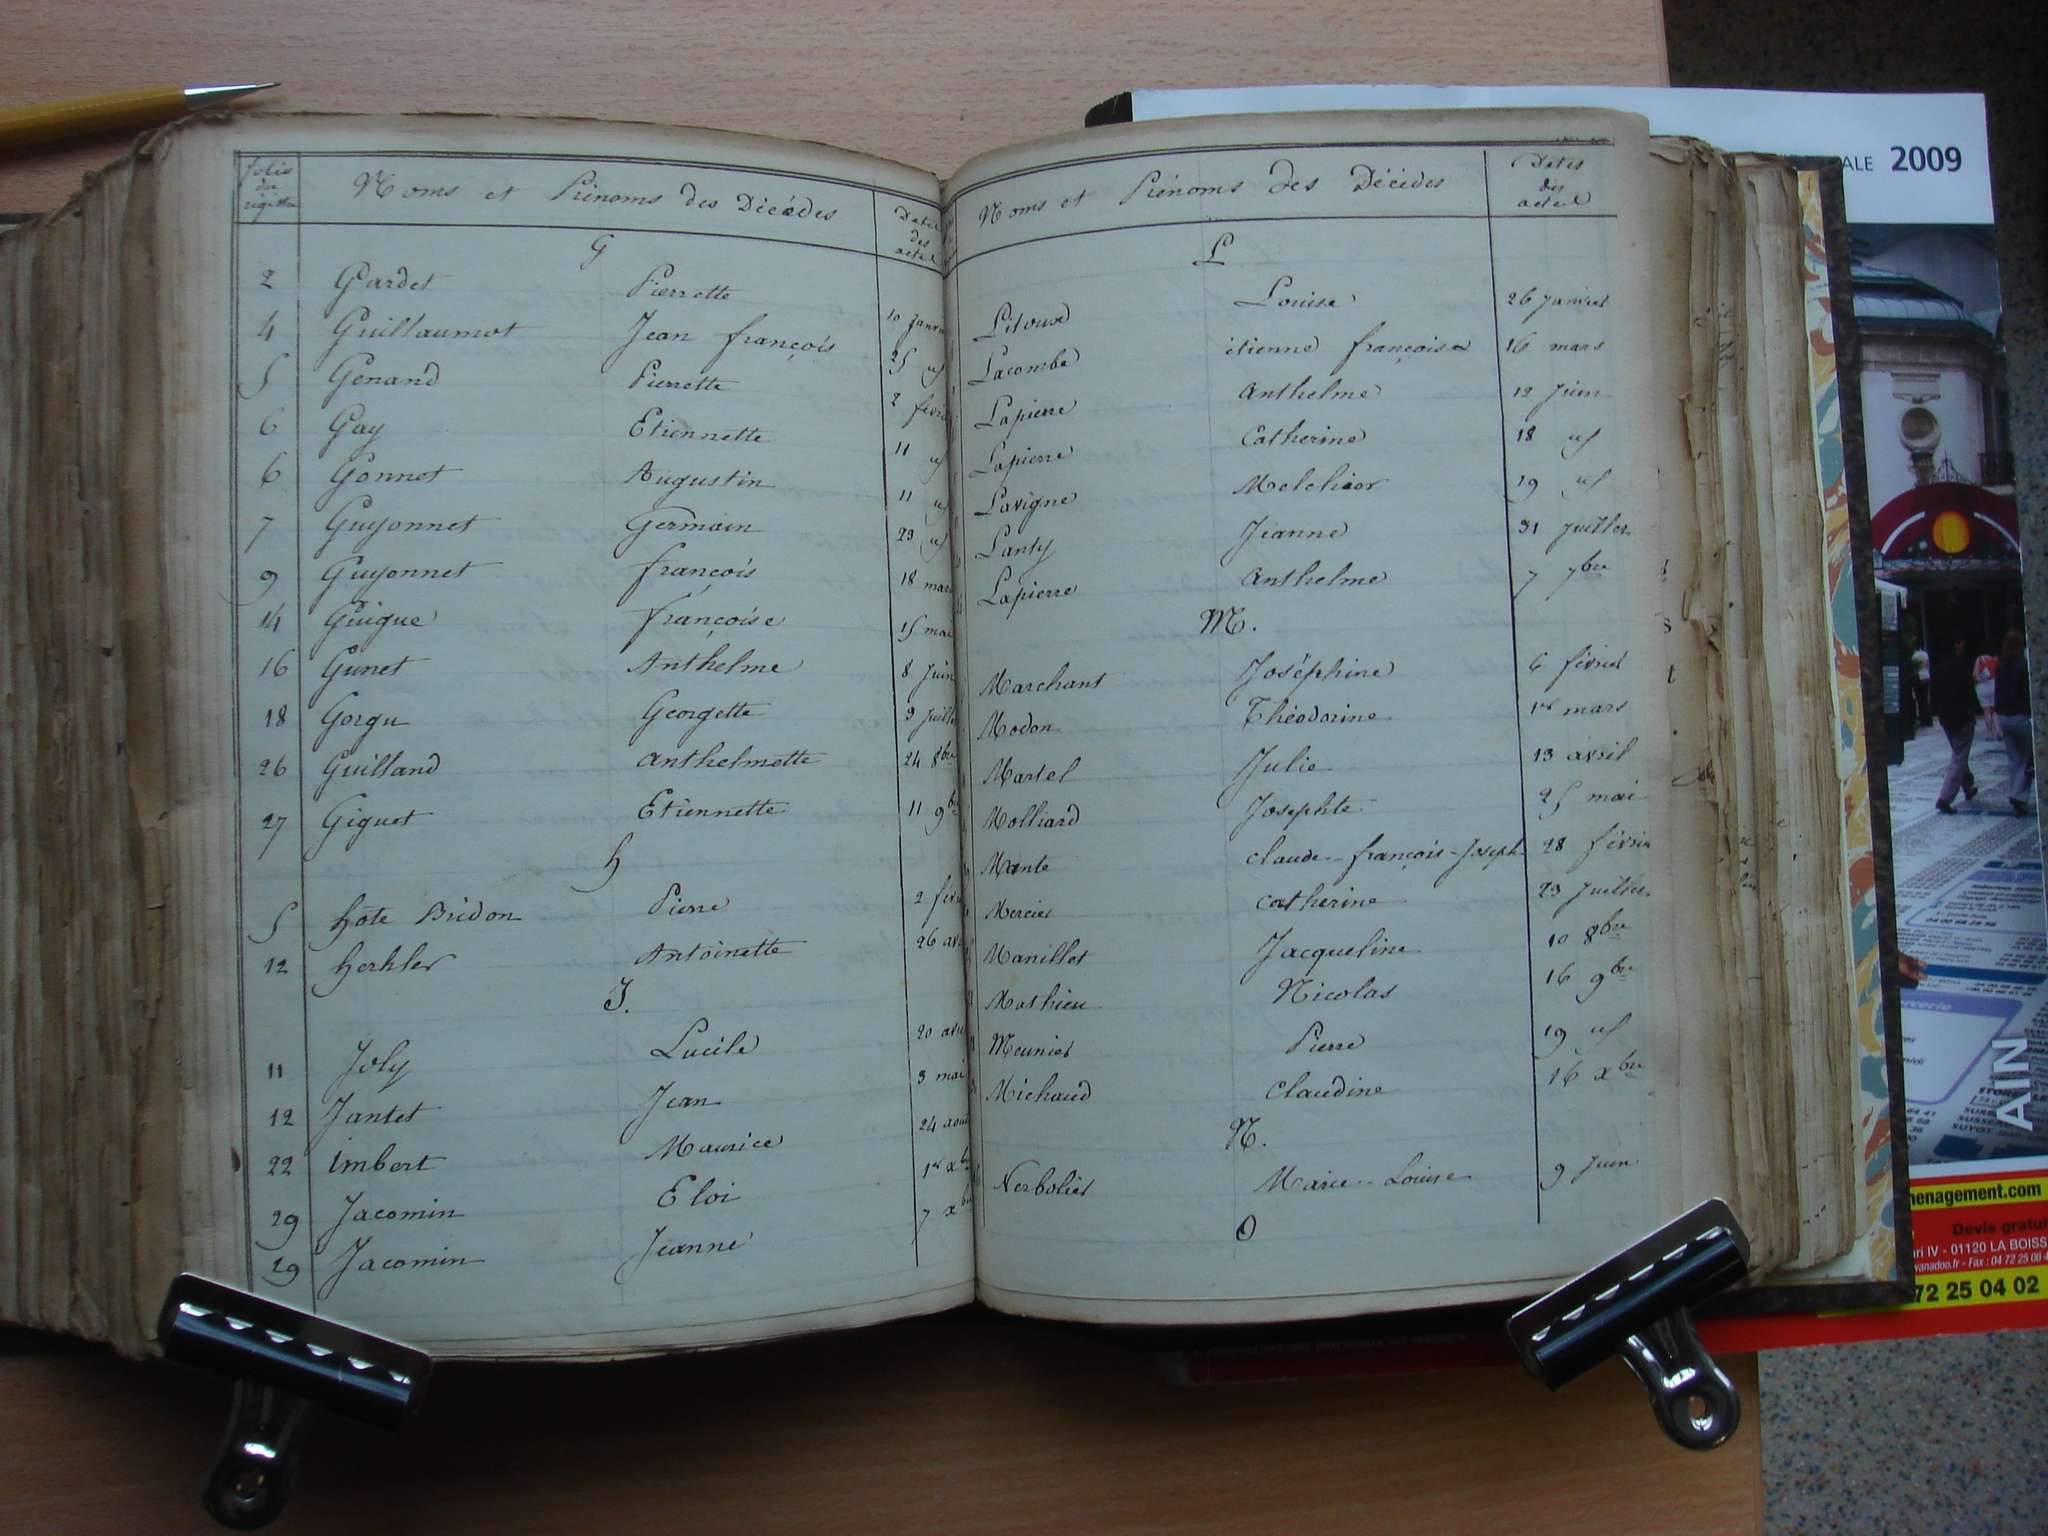 folio du registre
Noms et Prénoms des Décédes
Dates des actes
G
2 Gardet Pierrette 10 Janvier
4 Guillaumot Jean françois 25 id
5 Genand Pierrette 2 février
6 Gay Etiennette 11 id
6 Gonnet Augustin 11 id
7 Guyonnet Germain 23 id
9 Guyonnet françois 18 mars
14 Guigue françoise 15 mai
16 Gunet Anthelme 8 Juin
18 Gorgu Georgette 3 Juillet
26 Guilland anthelmette 24 8bre
27 Giguet Etiennette 11 9bre
h
5 hote Bridon Pierre 2 fév
12 herhler Antoinette 26 avr
J.
11 Joly Lucile 20 avril
12 Jantet Jean 3 mai
22 imbert Maurice 24 aout
29 Jacomin Eloi 1er xbre
29 Jacomin Jeanne 7 xbre
Noms et Prénoms des Décédes
Dates des actes
L
Litoux Louise 26 Janvier
Lacombe étienne 16 mars
Lapierre Anthelme 12 Juin
Lapierre Catherine 18 id
Lavigne Melchior 19 id
Lanty Jeanne 31 Juillet
Lapierre Anthelme 7 7bre
M.
Marchant Joséphine 6 février
Modon Théodorine 1er mars
Martel Julie 13 avril
Molliard Josephte 25 mai
Mante claude-françois-Joseph 28 février
Mercier catherine 23 Juillet
Manillet Jacqueline 10 8bre
Mathieu Nicolas 16 9bre
Meunier Pierre 19 id
Michaud Claudine 16 xbre
N.
Nerbolier Marie-Louise 9 Juin
O
ALE 2009
AIN
menagement.com
Devis gratui
ri IV - 01120 LA BOISS
72 25 04 02